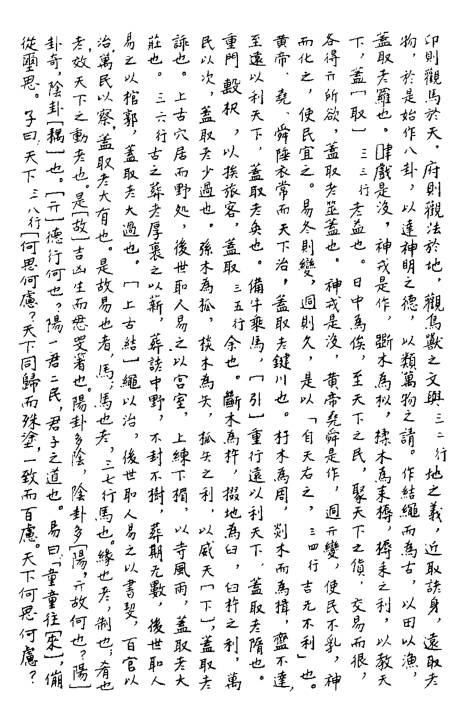 卬則觀馬於天，府則觀法於地，觀鳥獸之文與三二行地之義，近取諸身，遠取者
物，於是始作八卦，以達神明之德，以類萬物之請。作結繩而為古，以田以漁，
蓋取者羅也。肂戲是沒，神戎是作，斲木為枱，揉木為耒耨，耨耒之利，以教天
下，蓋［取］三三行者益也。日中為俟，至天下之民，聚天下之貨，交易而很，
各得亓所欲，蓋取者筮蓋也。神戎是沒，黃帝堯舜是作，迵亓變，使民不乳，神
而化之，使民宜之。易冬則變，迵則久，是以「自天右之，三四行吉无不利」也。
黃帝、堯、舜陲衣常而天下治，蓋取者鍵川也。杅木為周，剡木而為揖，齎不達，
至遠以利天下，蓋取者奐也。備牛乘馬，［引］重行遠以利天下，蓋取者隋也。
重門毄柝，以挨旅客，蓋取三五行余也。斷木為杵，掇地為臼，臼杵之利，萬
民以次，蓋取者少過也。孫木為孤，棪木為矢，孤矢之利，以威天［下］，蓋取者
諑也。上古穴居而野処，後世聖人易之以宮室，上練下楣，以寺風雨，蓋取者大
莊也。三六行古之葬者厚裹之以薪，葬諸中野，不封不樹，葬期无數，後世聖人
易之以棺郭，蓋取者大過也。［上古結］繩以治，後世聖人易之以書契，百官以
治，萬民以察，蓋取者大有也。是故易也者，馬；馬也者，三七行馬也。緣也者，制也；肴也
者，效天下之動者也。是［故］吉凶生而悬哭箸也。陽卦多陰，陰卦多［陽，亓故何也？陽］
卦奇，陰卦［耦］也。［亓］德行何也？陽一君二民，君子之道也。易曰：「童童往［來］，傰
從璽思。」子曰：「天下三八行［何思何慮？天下同歸而殊塗，一致而百慮。天下何思何慮？